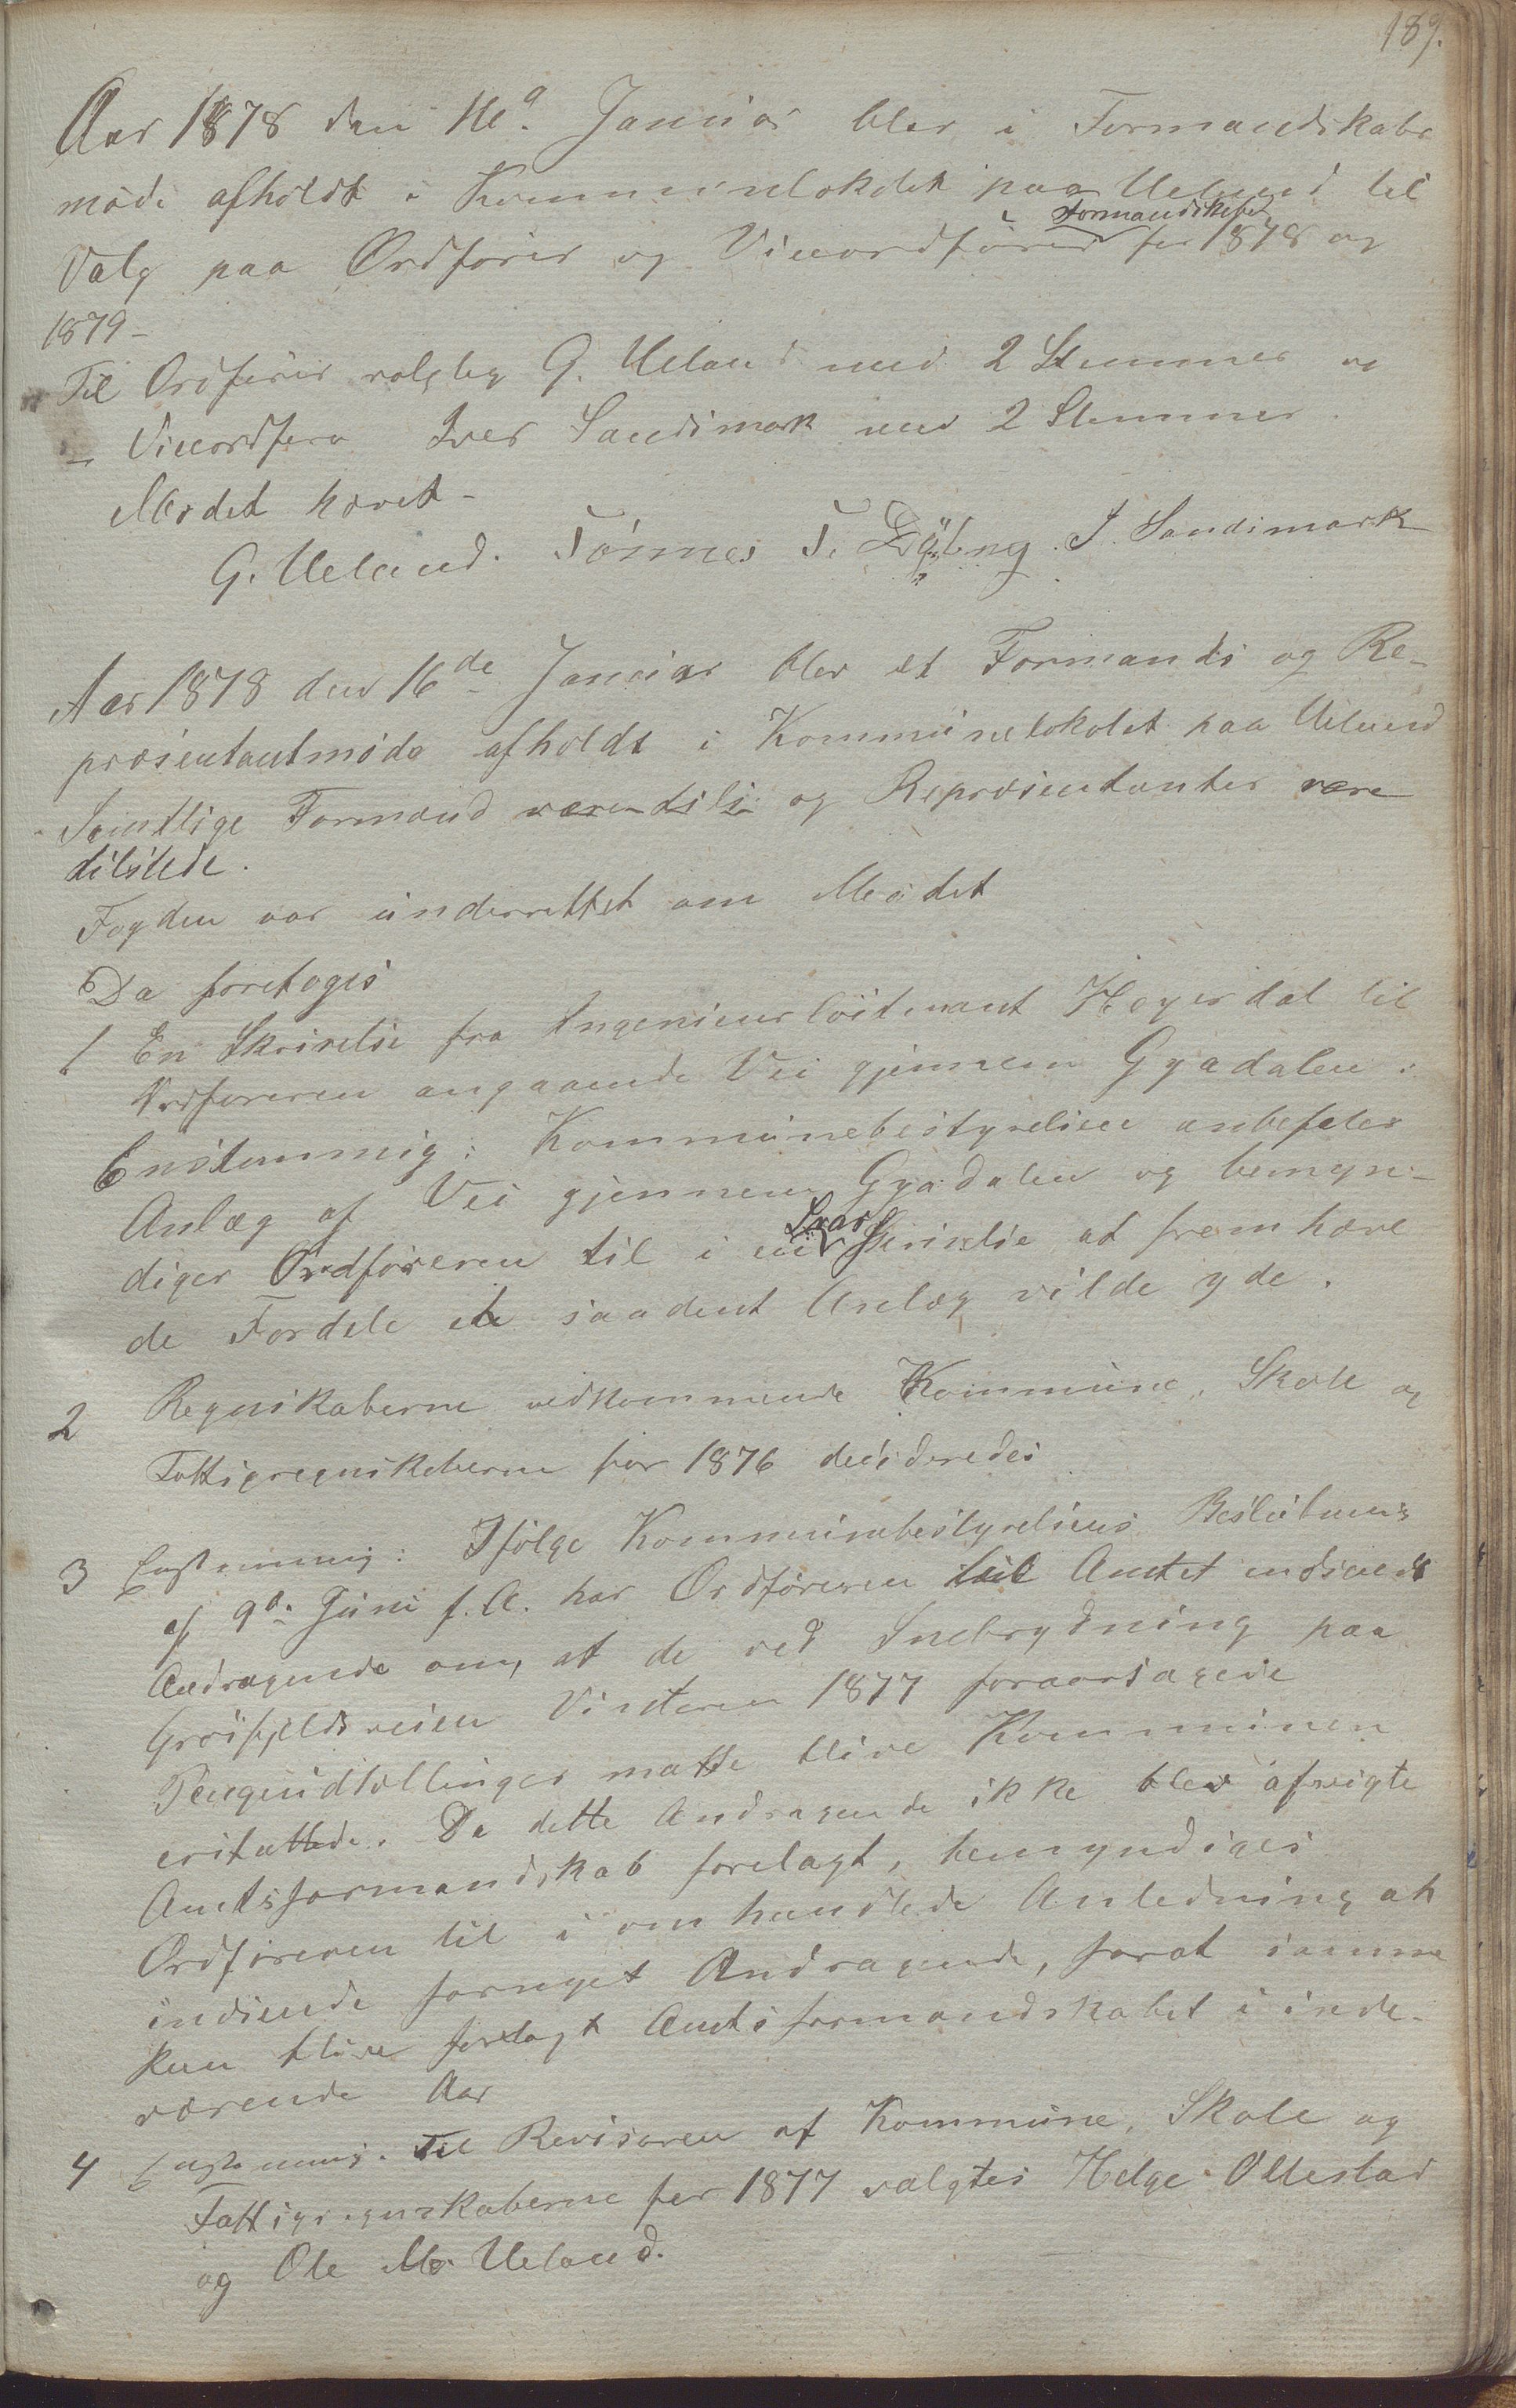 189.
Aar 1878 den 16de Januar blev i Formandskabs
møde afholdt i Kommunelokalet paa Ueland til
Formandskabet
Valg paa Ordfører og Viceordfører for 1878 og
1879 -
Til Ordfører valgtes G. Ueland med 2 Stemmer og
- Viceordfører Iver Sandsmark med 2 Stemmer.
Mødet hævet -
G. Ueland. Tønnes T. Dybing. I. Sandsmark
Aar 1878 den 16de Januar blev et Formands og Re-
præsentantmøde afholdt i Kommunelokalet paa Ueland
Samtlige Formænd varen tils og Repræsentanter vare
tilstede.
Fogden var underrettet om Mødet
Da foretoges
1 En Skrivelse fra Ingenieurløitnant Høyerdal til
Ordføreren angaaende Vei gjennem Gyadalen.
Enstemmig: Kommunebestyrelsen anbefaler
Anlæg af Vei gjennem Gyadalen og bemyn-
Svar
diger Ordføreren til i en Skrivelse at fremhæve
de Fordele et saadent Anlæg vilde yde.
2 Regnskaberne vedkommende Kommune, Skole og
Fattigregnskaberne for 1876 desideredes
3 Enstemmig: Ifølge Kommunebestyrelsens Beslutning
af 9de Juni f. A. har Ordføreren til Amtet indsendt
Andragende om, at de ved Snebrydning paa
Grøsfjeldsveien Vinteren 1877 foraarsagede
Pengeudtællinger matte blive Kommunen
erstattede. Da dette Andragende ikke blev afvigte
Amtsformandskab forelagt, bemyndiges
Ordføreren til i omhandlede Anledning at
indsende fornyet Andragende, forat samme
kan blive forelagt Amtsformandskabet i inde-
værende Aar
4 Enstemmig. Til Revisoren af Kommune, Skole og
Fattigregnskaberne for 1877 valgtes Helge Ollestad
og Ole M. Ueland.